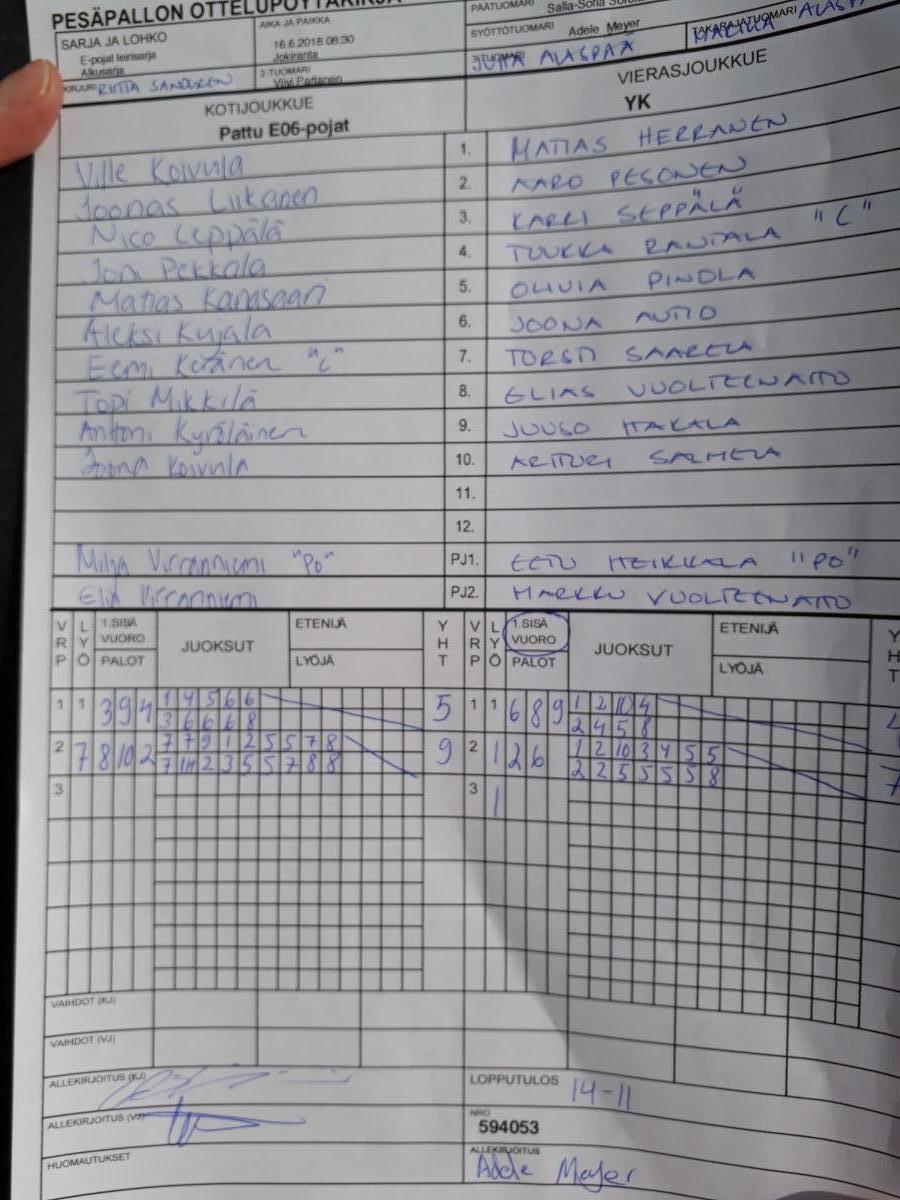 PESÄPALLON OTTELUPÖYTÄKIRJA
SARJA JA LOHKO
E-pojat leirisarja
Alkusarja
AIKA JA PAIKKA
16.6.2018 08:30
Jokiranta
PÄÄTUOMARI Salla-Sofia
SYÖTTÖTUOMARI Adele Meyer
KIRJURI RIITTA
2-TUOMARI
Vilivi Partanen
3-TUOMARI JUHA ALASPÄÄ
TAKARAJATUOMARI
KOTIJOUKKUE
Pattu E06-pojat
VIERASJOUKKUE
YK
Ville Koivula 1. MATIAS HERRANEN
Joonas Liikanen 2. AARO PESONEN
Nico Leppälä 3. KARRI SEPPÄLÄ
Jon Pekkala 4. TUUKKA RANTALA "C"
Matias Kanasaari 5. OLIVIA PINOLA
Aleksi Kujala 6. JOONA AUTIO
Eemi Keränen "C" 7. TORSTI SAARELA
Topi Mikkilä 8. ELIAS VUOLTEENAHO
Anttoni Kyröläinen 9. JUUSO HAKALA
Joona Koivula 10. ARTTURI SALMELA
11.
12.
Milja Virranniemi "PO" PJ1. EETU HEIKKALA "PO"
Elia Virranniemi PJ2. MARKKU VUOLTEENAHO
VRP LYÖ 1.SISÄ VUORO PALOT JUOKSUT ETENIJÄ LYÖJÄ YHT VRP LYÖ 1.SISÄ VUORO PALOT JUOKSUT ETENIJÄ LYÖJÄ YHT
1 1 3 9 4 1 4 5 6 6 5 1 1 6 8 9 1 2 10 4 4
3 6 6 6 8 2 4 5 8
2 7 8 10 2 7 7 9 1 2 5 5 7 8 9 2 1 2 6 1 2 10 3 4 5 5 7
7 10 2 3 5 5 7 8 8 2 2 5 5 5 5 8
3 3 1
VAIHDOT (KJ)
VAIHDOT (VJ)
ALLEKIRJOITUS (KJ)
LOPPUTULOS 14-11
ALLEKIRJOITUS (VJ)
NRO
594053
HUOMAUTUKSET
ALLEKIRJOITUS
Adele Meyer